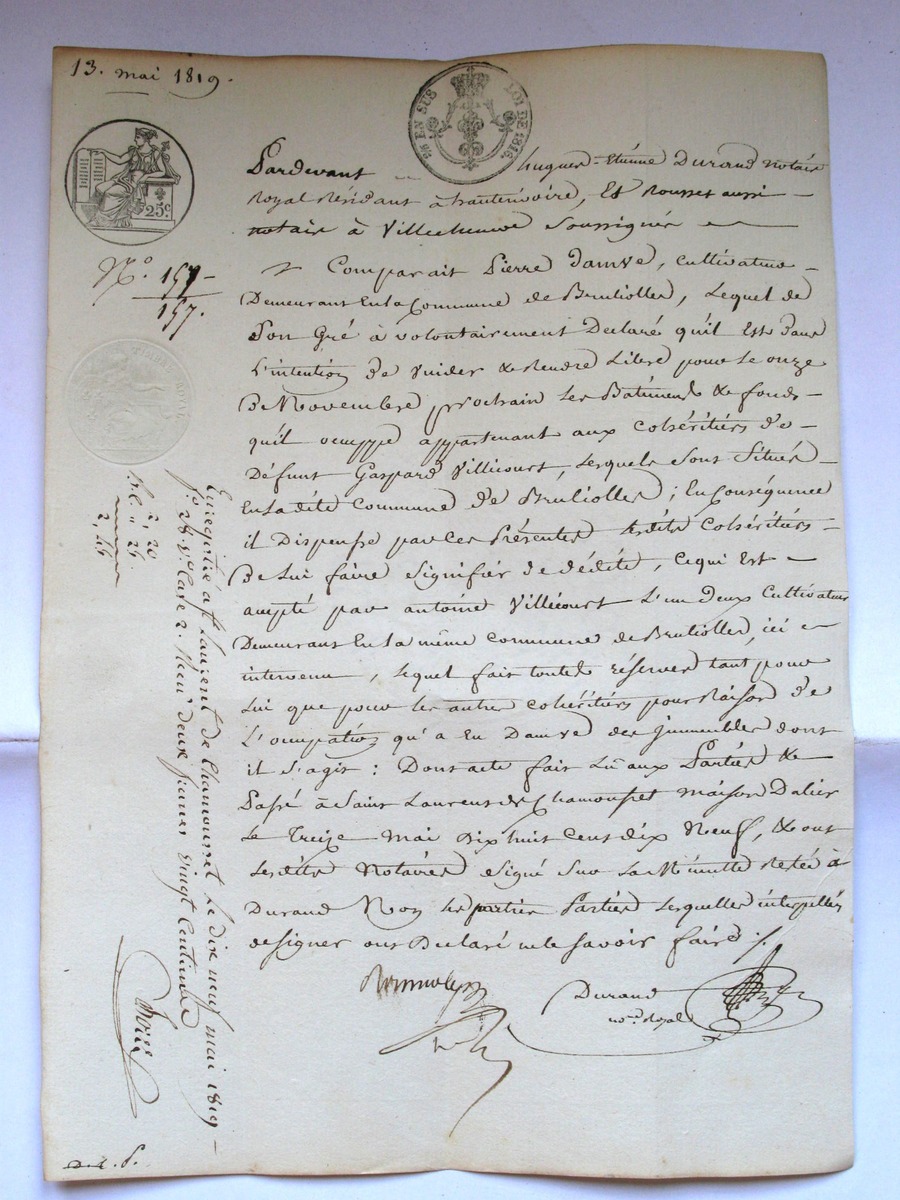 13. mai 1819.
2/5 EN SUS LOI DE 1816.
25c
TIMBRE ROYAL
Pardevant hugues-Etiénne Durand notaire
Royal Résidant à hauterivoire, Et Rousset aussi
notaire à Villecheneve Soussignés
Comparait Pierre Damve, Cultivateur
Demeurant En la Commune de Brulioller, Lequel de
Son Gré à volontairement Declaré quil Est dans
L'intention de Vuider & Rendre Libre pour le onze
De Novembre prochain les Batiments & fonds
quil ocuppe appartenant aux Cohéritiérs de
Défunt Gaspard Villecourt, Lesquels Sont Situés
En la dite Commune de Brulioller; En Conséquence
il Dispense par Ces Présentes lesdits Cohéritiérs
De Lui faire Signifiér de dédite, Ce qui Est
accepté par antoine Villecourt L'un deux Cultivateur
Demeurant En la même Commune de Brulioller, ici
intervenu, Lequel fait toutes réserves tant pour
Lui que pour les autres Cohéritiérs pour Raison de
L'occupation qu'a Eu Damve des Immeubles dont
il S'agit: Dont acte fait Lu aux Partiés &
Passé à Saint Laurent de Chamousset maison Dalier
Le Treize mai Dix huit Cent dix Neuf, & ont
Lesdits Notaires Signé Sur La Minutte Restée à
Durand Non les partier Partiés Lesquelles interpellés
de Signer ont Declaré ne le Savoir faire ./.
Durand
no.re Royal
N.o 157
157.
2, 20
" 24
2, 44
Enregistré à St Laurent de Chamousset le dix neuf mai 1819
f.o 28 v.o Case 2. Reçu deux francs vingt Centimes